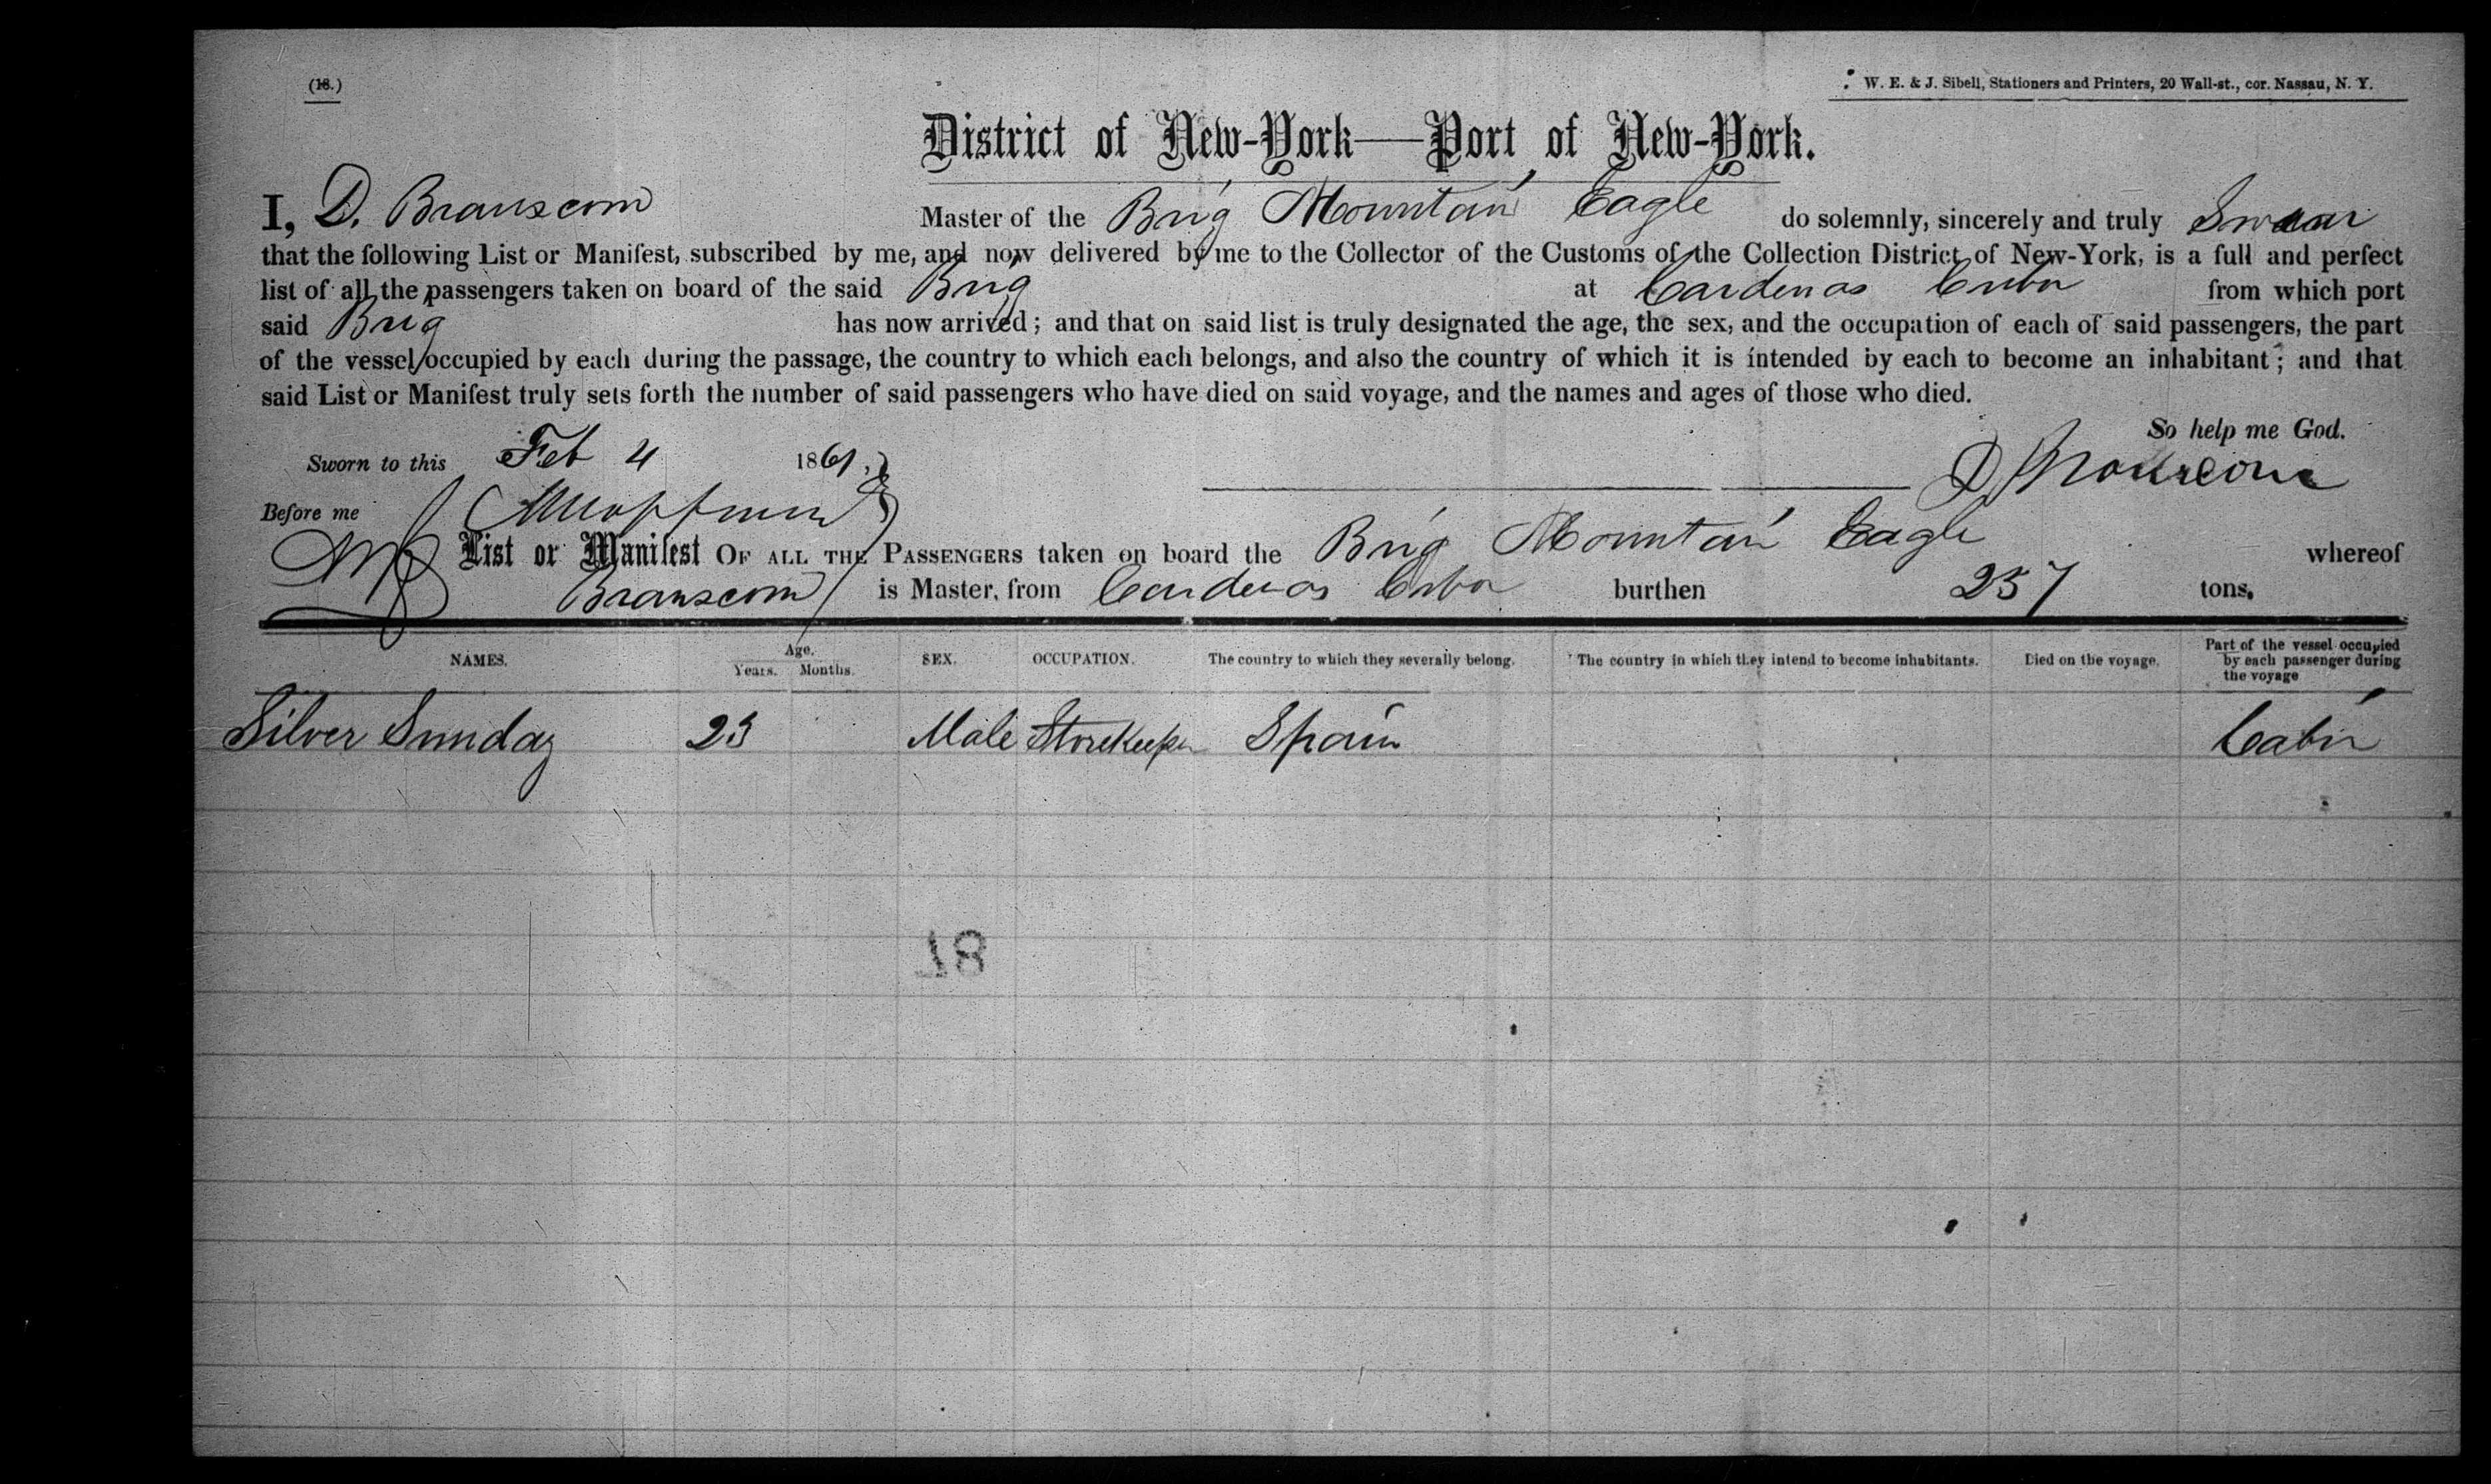 (18.)
W. E. & J. Sibell, Stationers and Printers, 20 Wall-st., cor. Nassau, N. Y.
District of New-York—Port of New-York.
I, D. Branscom Master of the Brig Mountain Eagle do solemnly, sincerely and truly Swear
that the following List or Manifest, subscribed by me, and now delivered by me to the Collector of the Customs of the Collection District of New-York, is a full and perfect
list of all the passengers taken on board of the said Brig at Cardenas Cuba from which port
said Brig has now arrived; and that on said list is truly designated the age, the sex, and the occupation of each of said passengers, the part
of the vessel occupied by each during the passage, the country to which each belongs, and also the country of which it is intended by each to become an inhabitant; and that
said List or Manifest truly sets forth the number of said passengers who have died on said voyage, and the names and ages of those who died.
So help me God.
Sworn to this Feb 4 1861,
D Branscom
Before me
List or Manifest OF ALL THE PASSENGERS taken on board the Brig Mountain Eagle whereof
Branscom is Master, from Cardenas Cuba burthen 257 tons.
NAMES. Age. Years. Months. SEX. OCCUPATION. The country to which they severally belong. The country in which they intend to become inhabitants. Died on the voyage. Part of the vessel occupied by each passenger during the voyage
Silver Sunday 23 Male Storekeeper Spain Cabin